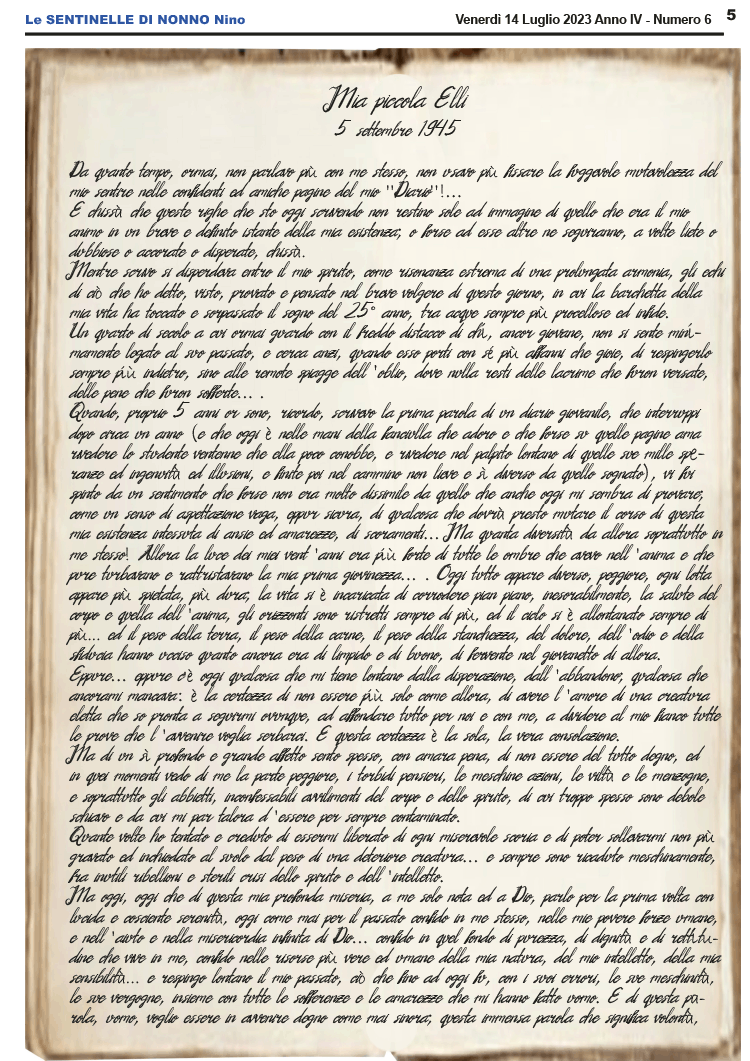 Le SENTINELLE DI NONNO Nino
Venerdì 14 Luglio 2023 Anno IV - Numero 6
5
Mia piccola Elli
5 settembre 1945
Da quanto tempo, ormai, non parlavo più con me stesso, non usavo più fissare la fuggevole mutevolezza del
mio sentire nelle confidenti ed amiche pagine del mio "Diario"!...
E chissà che queste righe che sto oggi scrivendo non restino sole ad immagine di quello che era il mio
animo in un breve e definito istante della mia esistenza; o forse ad esse altre ne seguiranno, a volte liete o
dubbiose o accorate o disperate, chissà.
Mentre scrivo si disperdeva entro il mio spirito, come risonanza estrema di una prolungata armonia, gli echi
di ciò che ho detto, visto, provato e pensato nel breve volgere di questo giorno, in cui la barchetta della
mia vita ha toccato e sorpassato il sogno del 25° anno, tra acque sempre più procellose ed infide.
Un quarto di secolo a cui ormai guardo con il freddo distacco di chi, ancor giovane, non si sente mini-
mamente legato al suo passato, e cerca anzi, quando esso porti con sé più affanni che gioie, di respingerlo
sempre più indietro, sino alle remote spiagge dell 'oblio, dove nulla resti delle lacrime che furon versate,
delle pene che furon sofferte... .
Quando, proprio 5 anni or sono, ricordo, scrivevo la prima parola di un diario giovanile, che interruppi
dopo circa un anno (e che oggi è nelle mani della fanciulla che adoro e che forse su quelle pagine ama
rivedere lo studente ventenne che ella poco conobbe, e rivedere nel palpito lontano di quelle sue mille spe-
ranze ed ingenuità ed illusioni, e finite poi nel cammino non lieve e sì diverso da quello sognato), vi fui
spinto da un sentimento che forse non era molto dissimile da quello che anche oggi mi sembra di provare;
come un senso di aspettazione vaga, eppur sicura, di qualcosa che dovrà presto mutare il corso di questa
mia esistenza intessuta di ansie ed amarezze, di scoramenti... Ma quanta diversità da allora soprattutto in
me stesso! Allora la luce dei miei vent 'anni era più forte di tutte le ombre che avevo nell 'anima e che
pure turbavano e rattristavano la mia prima giovinezza... . Oggi tutto appare diverso, peggiore, ogni lotta
appare più spietata, più dura, la vita si è incaricata di corrodere pian piano, inesorabilmente, la salute del
corpo e quella dell 'anima, gli orizzonti sono ristretti sempre di più, ed il cielo si è allontanato sempre di
più... ed il peso della terra, il peso della carne, il peso della stanchezza, del dolore, dell 'odio e della
sfiducia hanno ucciso quanto ancora era di limpido e di buono, di fervente nel giovanetto di allora.
Eppure... eppure c'è oggi qualcosa che mi tiene lontano dalla disperazione, dall 'abbandono, qualcosa che
ancorami mancava: è la certezza di non essere più solo come allora, di avere l 'amore di una creatura
eletta che so pronta a seguirmi ovunque, ad affondare tutto per noi e con me, a dividere al mio fianco tutte
le prove che l 'avvenire voglia serbarci. E questa certezza è la sola, la vera consolazione.
Ma di un sì profondo e grande affetto sento spesso, con amara pena, di non essere del tutto degno, ed
in quei momenti vedo di me la parte peggiore, i torbidi pensieri, le meschine azioni, le viltà e le menzogne,
e soprattutto gli abbietti, inconfessabili avvilimenti del corpo e dello spirito, di cui troppo spesso sono debole
schiavo e da cui mi par talora d 'essere per sempre contaminato.
Quante volte ho tentato e creduto di essermi liberato di ogni miserevole scoria e di poter sollevarmi non più
gravato ed inchiodato al suolo dal peso di una deteriore creatura... e sempre sono ricaduto meschinamente,
fra inutili ribellioni e sterili crisi dello spirito e dell 'intelletto.
Ma oggi, oggi che di questa mia profonda miseria, a me solo nota ed a Dio, parlo per la prima volta con
lucida e cosciente serenità, oggi come mai per il passato confido in me stesso, nelle mie povere forze umane,
e nell 'aiuto e nella misericordia infinita di Dio... confido in quel fondo di purezza, di dignità e di rettitu-
dine che vive in me, confido nelle risorse più vere ed umane della mia natura, del mio intelletto, della mia
sensibilità... e respingo lontano il mio passato, ciò che fino ad oggi fu, con i suoi errori, le sue meschinità,
le sue vergogne, insieme con tutte le sofferenze e le amarezze che mi hanno fatto uomo. E di questa pa-
rola, uomo, voglio essere in avvenire degno come mai sinora; questa immensa parola che significa volontà,